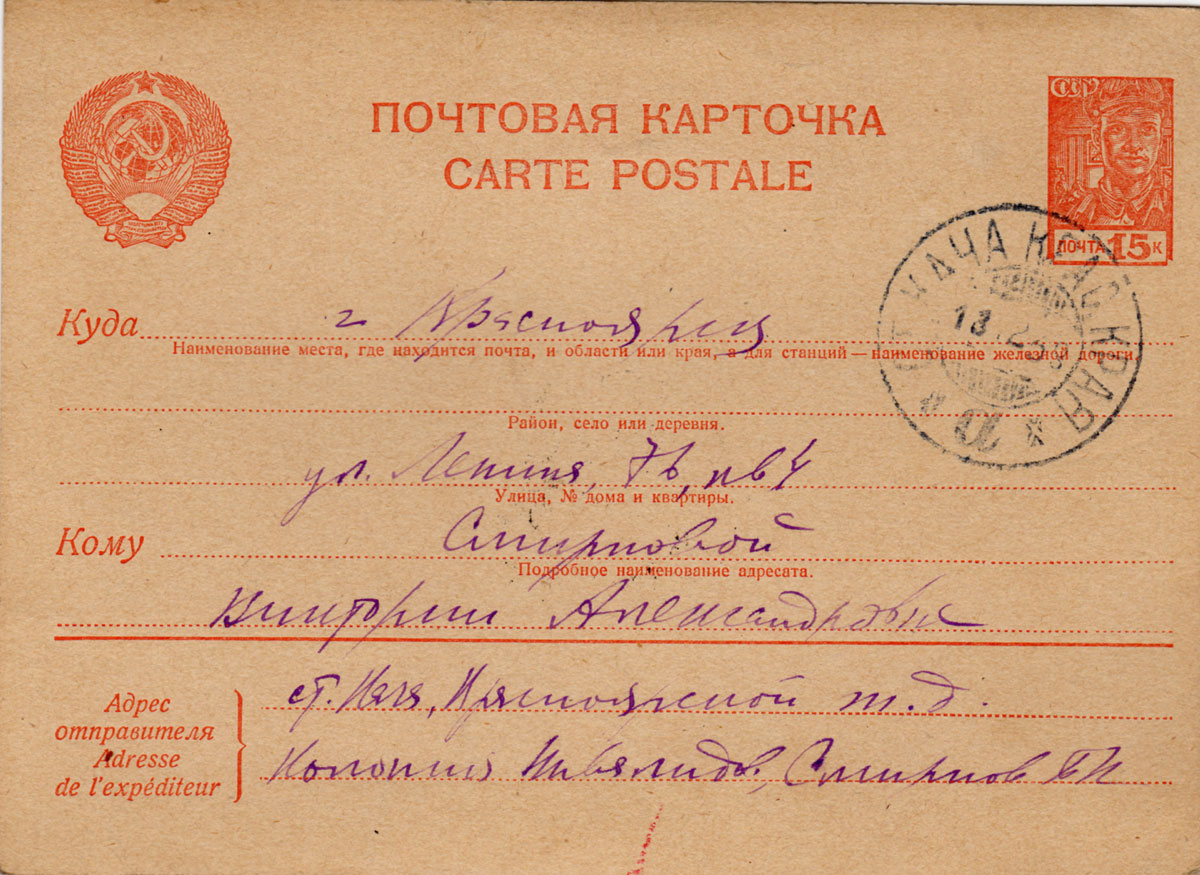 ПОЧТОВАЯ КАРТОЧКА
CARTE POSTALE
СССР
ПОЧТА 15 К
КАЧА КРАС КРАЯ
13.2.38
Куда г Красноярск
Наименование места, где находится почта, и области или края, а для станций — наименование железной дороги.
Район, село или деревня.
ул. Ленина, 76, кв 4
Улица, № дома и квартиры.
Кому Смирновой
Подробное наименование адресата.
Виктории Александровне
Адрес
отправителя
Adresse
de l'expéditeur
ст. Кача, Красноярской ж.д.
Колония Инвалидов, Смирнов